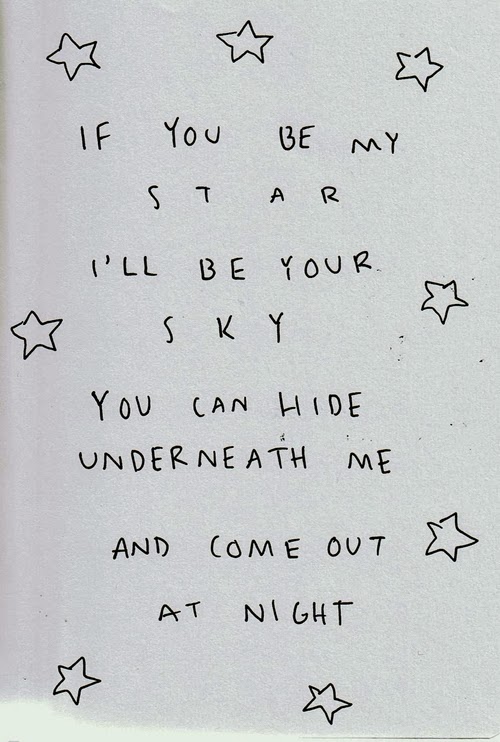 IF YOU BE MY
S T A R
I'LL BE YOUR
S K Y
YOU CAN HIDE
UNDERNEATH ME
AND COME OUT
AT NIGHT